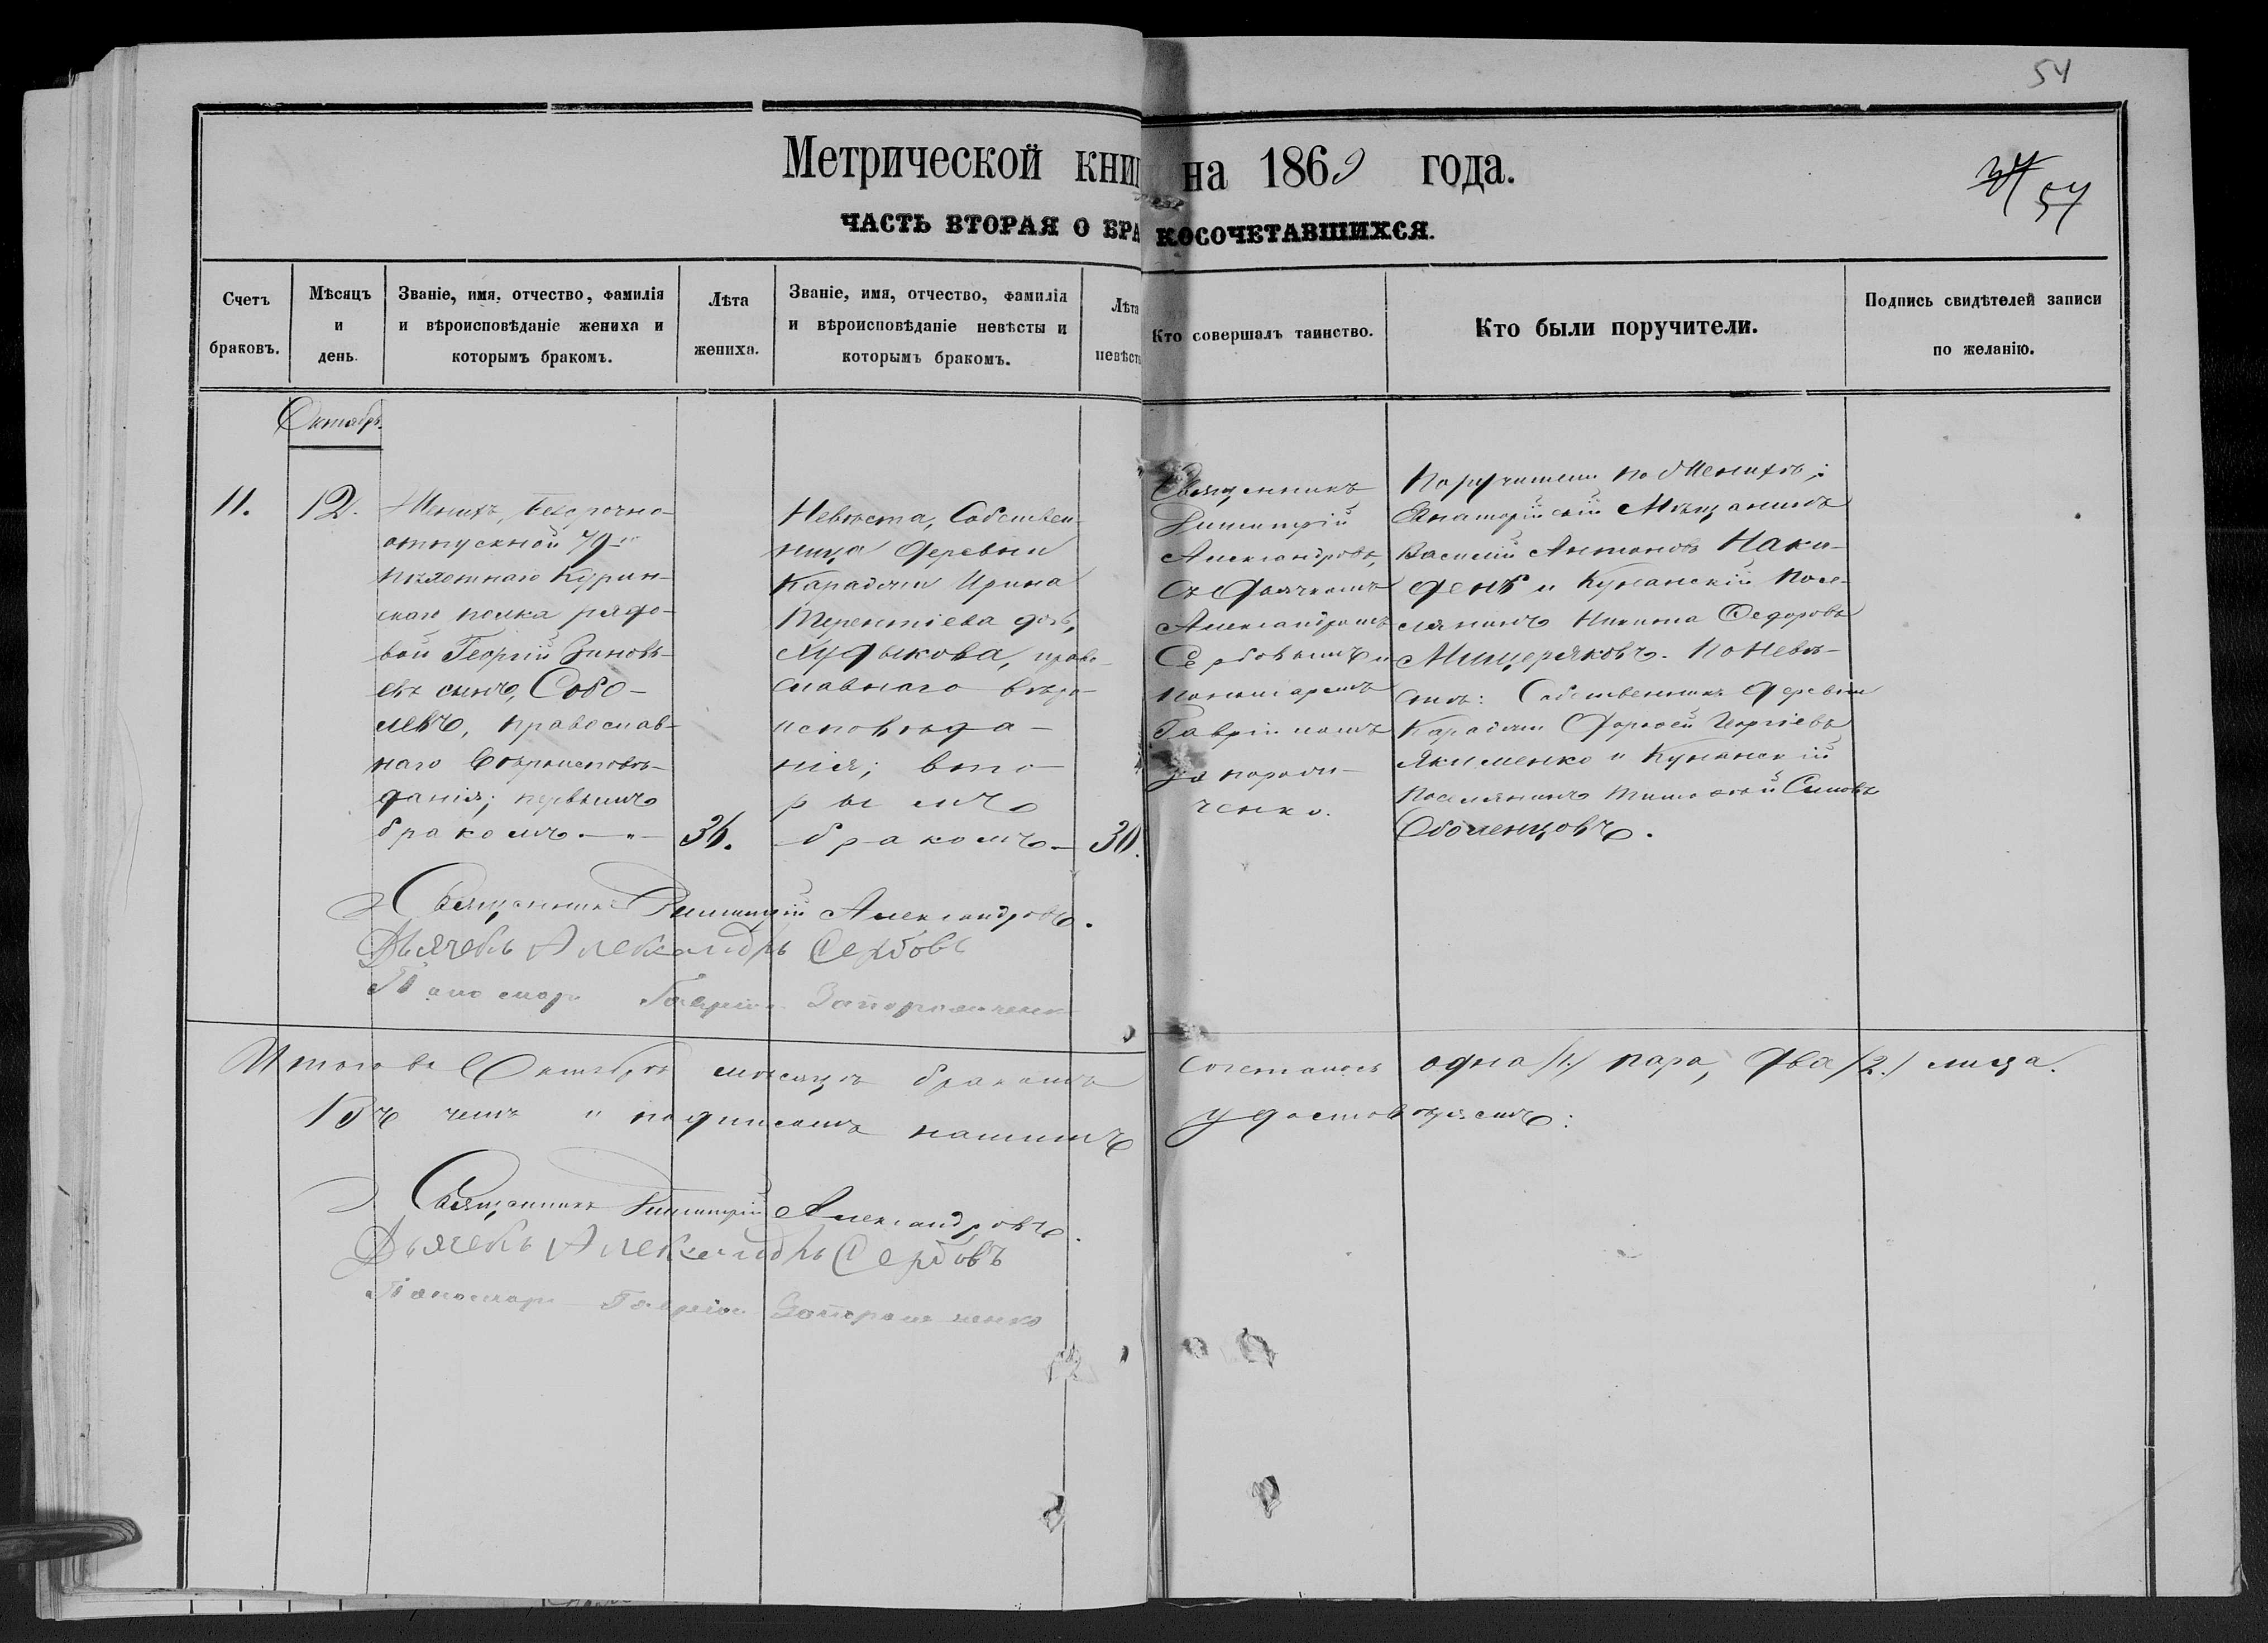 54
Метрической кни на 1869 года.
54
ЧАСТЬ ВТОРАЯ О БРАКОСОЧЕТАВШИХСЯ.
Счетъ браковъ.
Мѣсяцъ и день.
Званіе, имя, отчество, фамилія и вѣроисповѣданіе жениха и которымъ бракомъ.
Лѣта жениха.
Званіе, имя, отчество, фамилія и вѣроисповѣданіе невѣсты и которымъ бракомъ.
Лѣта невѣст
Кто совершалъ таинство.
Кто были поручители.
Подпись свидѣтелей записи по желанію.
Октябрь.
11.
12.
Женихъ, безсрочно-
отпускной 79го
пѣхотнаго Курин-
скаго полка рядо-
вой Георгій Зиновь-
евъ сынъ, Собо-
левъ, православ-
наго вѣроисповѣ-
данія; первымъ
бракомъ.
36.
Невѣста, Собствен-
ница деревни
Караджи Ирина
Терентіева дочь,
православнаго вѣро-
исповѣда-
нія; вто-
рымъ
бракомъ.
30.
Священникъ
Димитрій
Александровъ,
съ дьячкомъ
Александромъ
Сербовымъ и
пономаремъ
Гавріиломъ
Запорож-
ченко.
Поручители по женихѣ:
Евпаторійскій мѣщанинъ
Василій Антоновъ Наки-
денъ и Кунанскій посе-
лянинъ Никита Федоровъ
Мищеряковъ. По невѣ-
стѣ: Собственникъ деревни
Караджи Георгіевъ
Якименко и Кунанскій
поселянинъ Тимофей
Оболенцовъ.
Священникъ Димитрій Александровъ.
Дьячекъ Александръ Сербовъ
Паномарь Гавріилъ Запорожченко
Итого въ Октябрѣ мѣсяцѣ бракомъ сочеталось одна /1./ пара, два /2./ лица.
Въ чемъ и подписомъ нашимъ удостовѣряемъ:
Священникъ Димитрій Александровъ.
Дьячекъ Александръ Сербовъ
Паномарь Гавріилъ Запорожченко